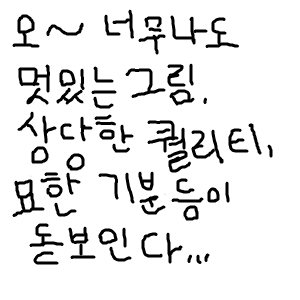 오~ 너무나도
멋있는 그림.
상당한 퀄리티,
묘한 기분등이
돋보인다...